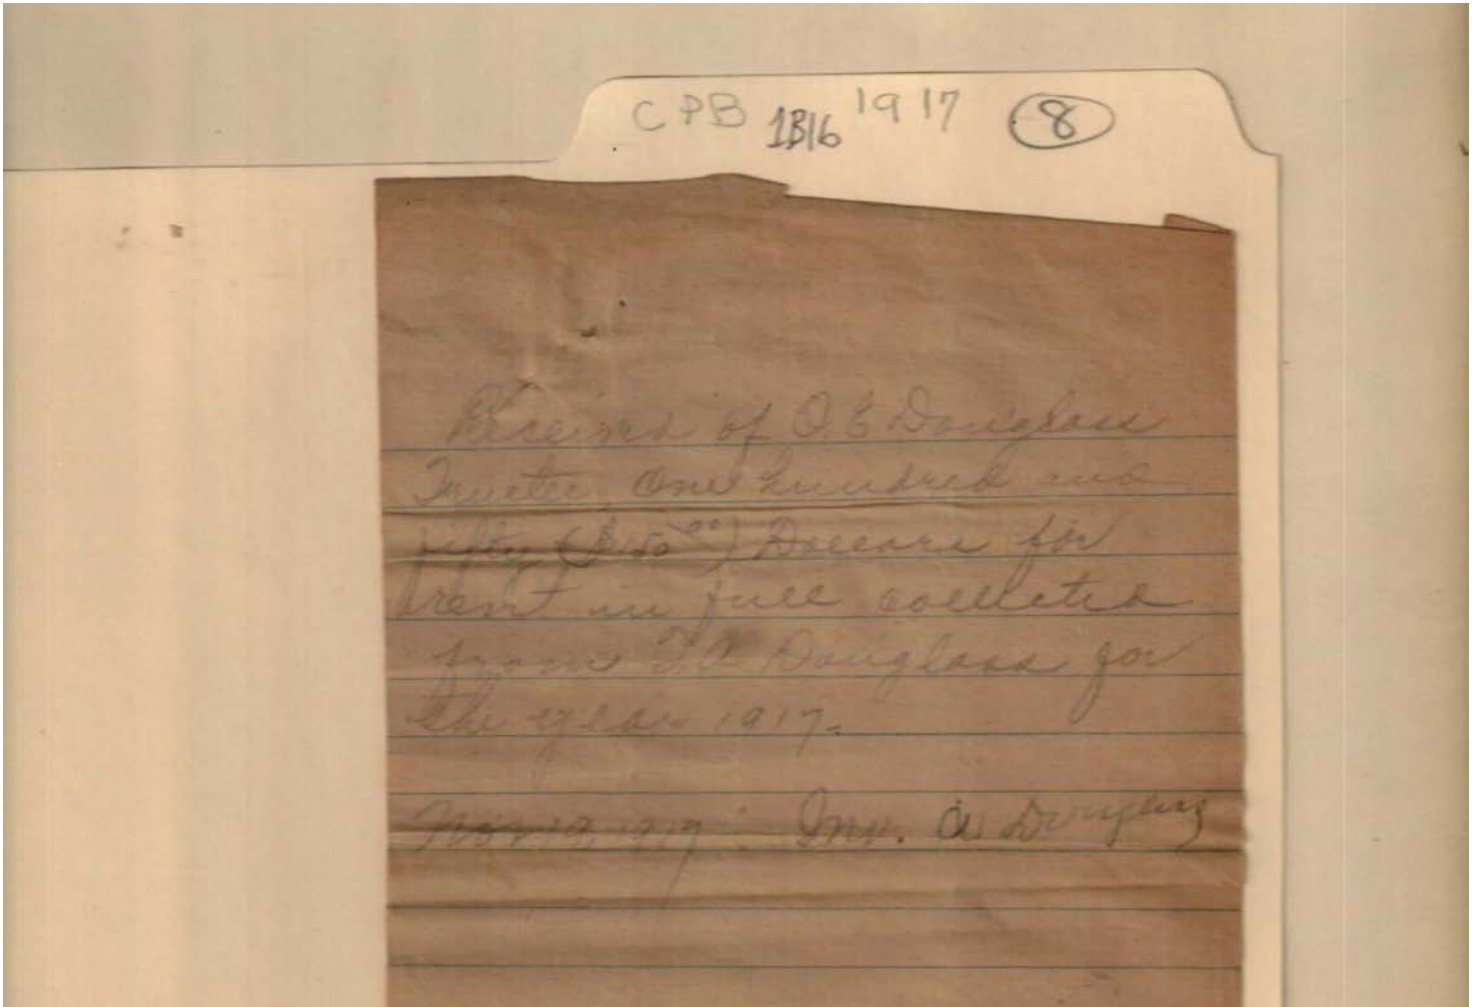 CPB 1B16 1917 8
Received of O.E Douglass
Trustee, one hundred and
fifty ($150.00) Dollars for
rent in full collected
from T A Douglass for
the year 1917.
Nov 19, 1917. A Douglass